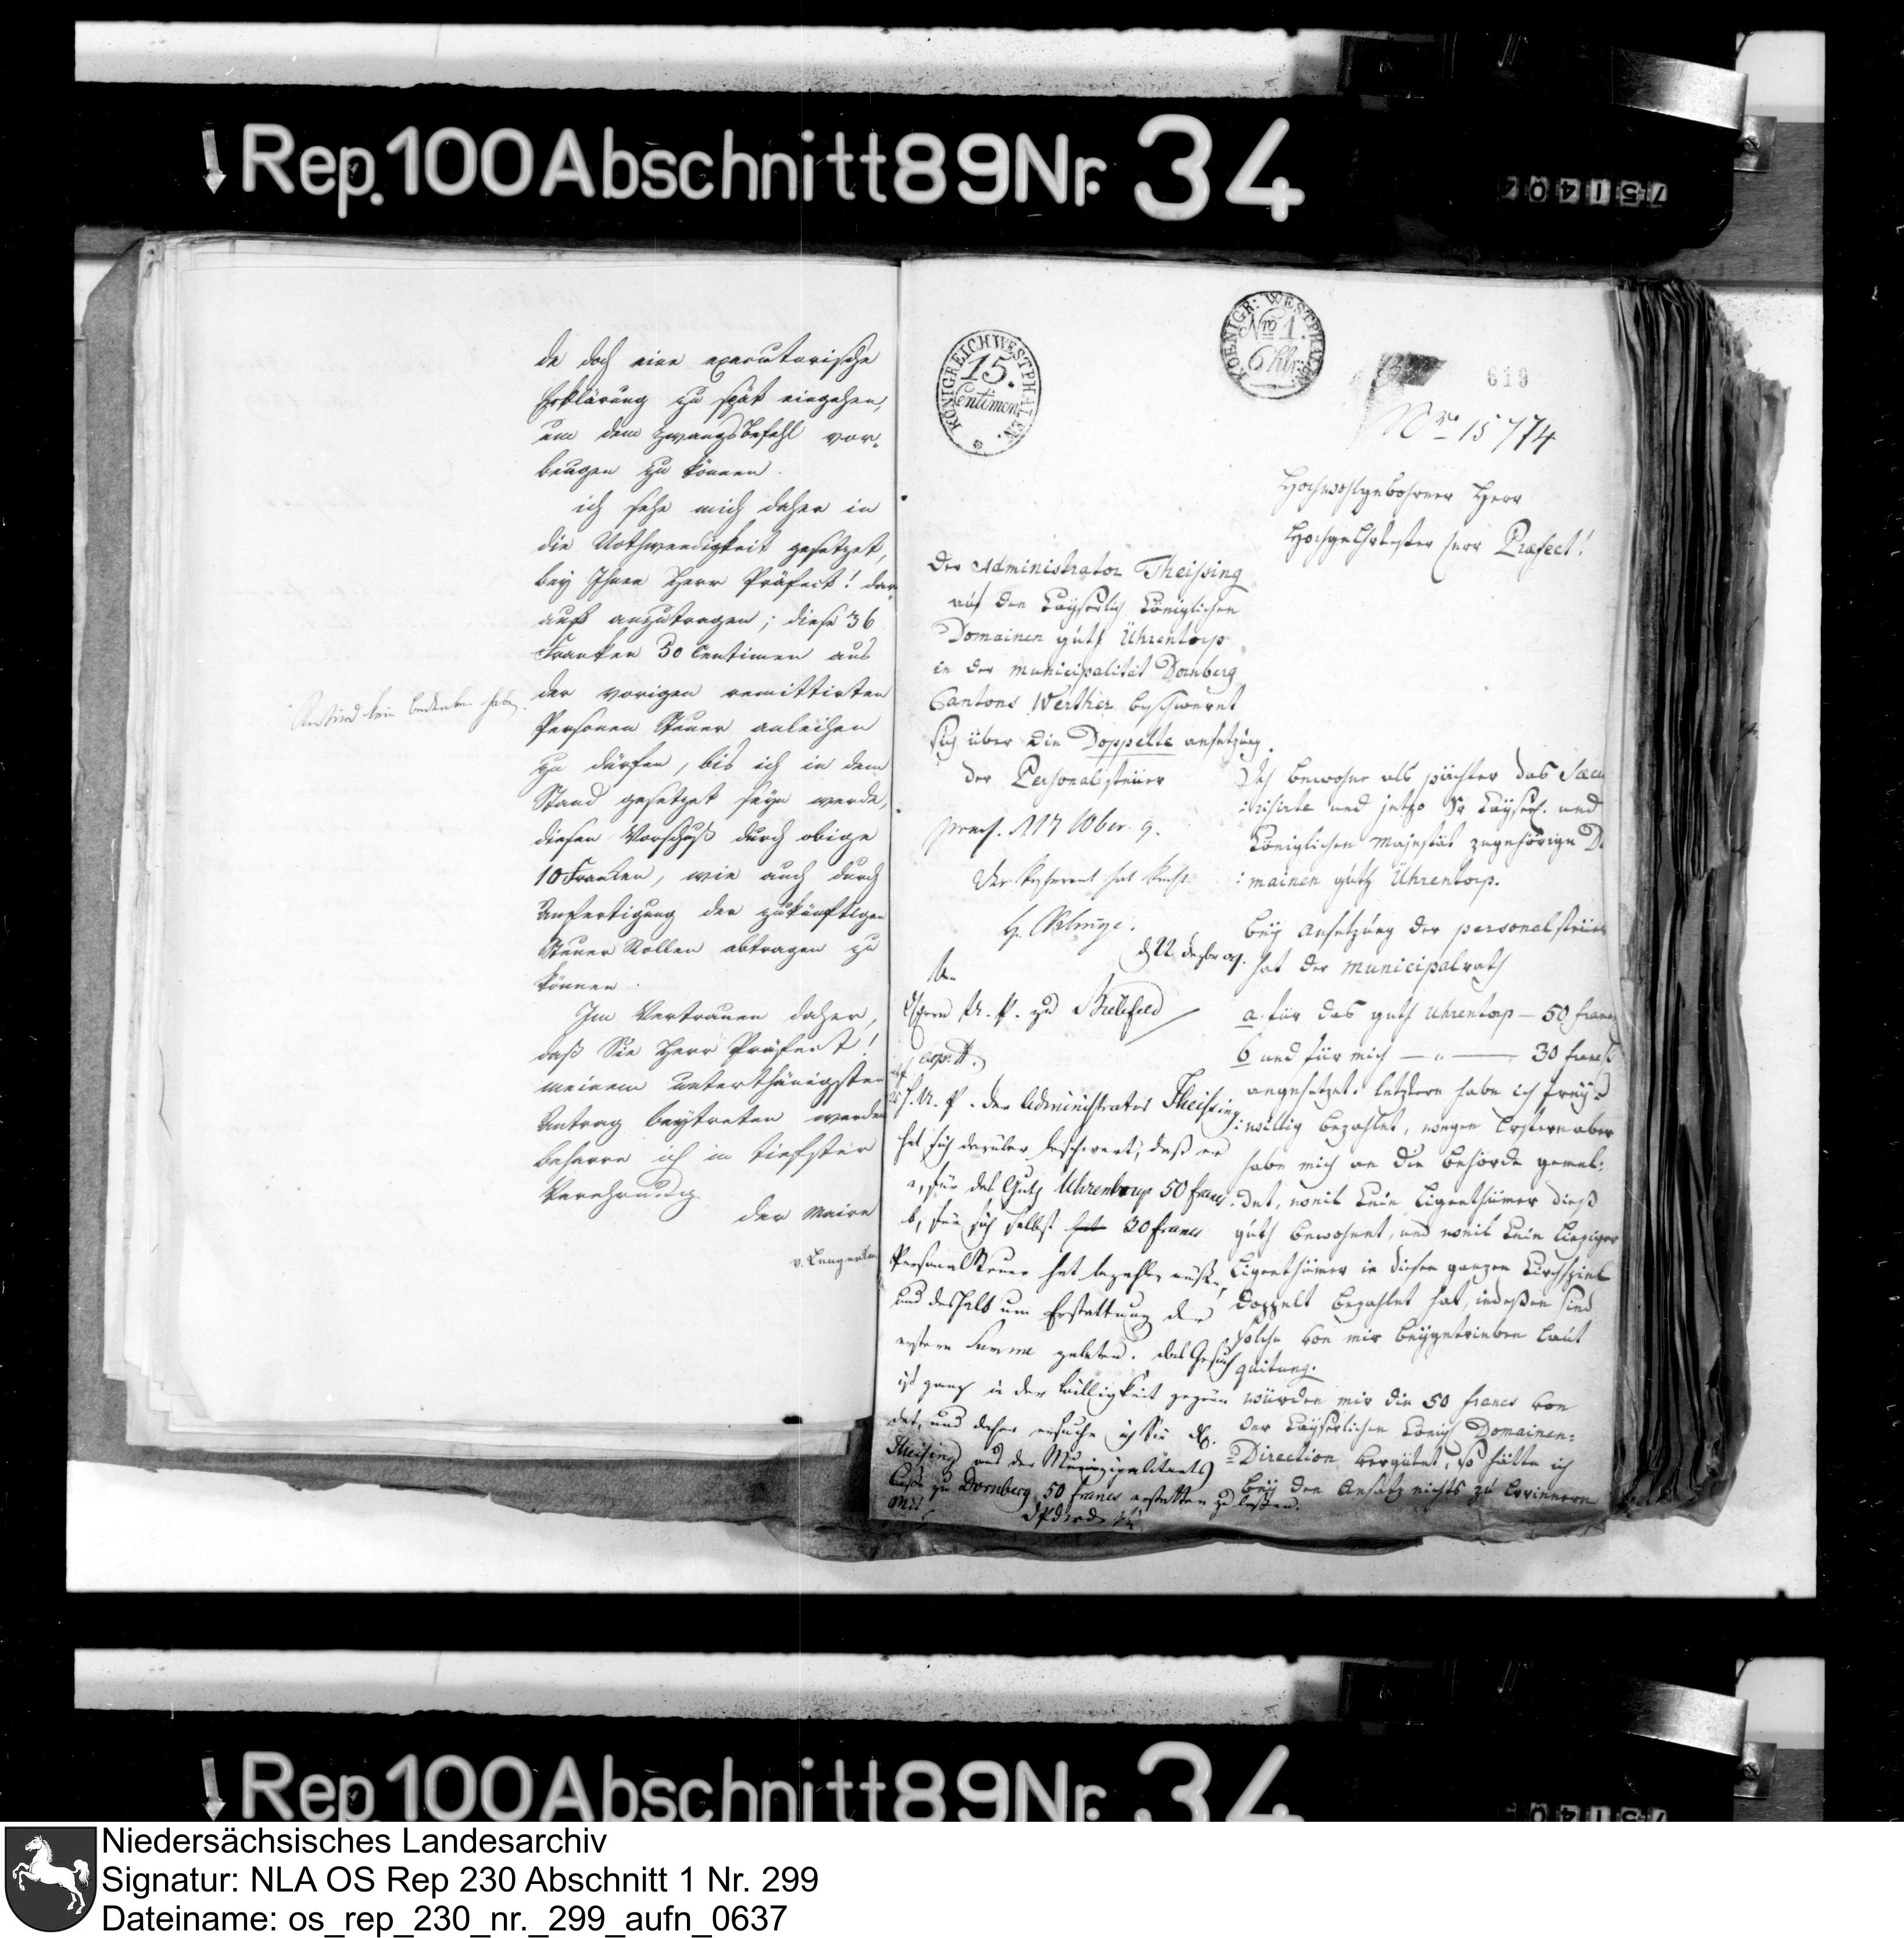 Rep. 100 Abschnitt 89 Nr. 34
da doch eine executorische
Erklärung zu spät eingehen,
um dem Zwangsbefehl vor-
beugen zu können.
ich sehe mich daher in
die Nothwendigkeit gesetzet,
bey Ihnen Herr Präfect! dar
auf anzutragen; diese 36
Franken 30 Centimen aus
der vorigen remittirten
Personen Steuer anleihen
zu dürfen, bis ich in dem
Stand gesetzet seyn werde,
diesen Vorschuß durch obige
10 Franken, wie auch durch
Anfertigung der zukünftigen
Steuer Rollen abtragen zu
können.
Im Vertrauen daher,
daß Sie Herr Präfect!
meinem unterthänigsten
Antrag beytreten werden
beharre ich in tiefster
Verehrung
der Maire
kein Bedenken haben.
KÖNIGREICH WESTPHALEN.
15.
Centimen
KOENIGR: WESTPHALEN
Nro 1.
6 Hlr.
619
Nro 15774
Hochwohlgebohrner Herr
Hochgeehrtester Herr Præfect!
Der Administrator Theissing
auf den Kayserlich Königlichen
Domainen guth Ührentorp
in der Municipalität Dornberg
Cantons Werther beschweret
sich über die Doppelte ansetzung
der Personalsteuer
præs. d 17 Xber. 9.
d 22 Dezbr 09.
An
Herrn U. P. zu Bielefeld
H. U. P. der Administrator Theissing
hat sich darüber beschwert, daß er
a, für das Guth Uhrentorp 50 francs
b, für sich selbst 30 francs
Personal Steuer hat bezahlen müßen,
und deshalb um Erstattung der
erstern Summe gebeten. Das Gesuch
ist ganz in der Billigkeit gegrün
det, und daher ersuche ich Sie
Theissing aus der Municipalitaets
Casse zu Dornberg 50 francs erstatten zu laßen.
Ich bewohne als pächter das Saecu
:risirte und jetzo Sr Kayserl. und
Königlichen Majestät zugehörige Do
:mainen guth Ührentorp.
bey ansetzung der personal steuer
hat der Municipalrath
a. für das guth Uhrentorp — 50 francs
b und für mich — " — 30 francs
angesetzet. letztere habe ich frey-
:willig bezahlet, wegen Erstern aber
habe mich an die Behörde gemel:
:det, weil kein Eigenthümer dieß
guth bewohnet, und weil kein hiesiger
Eigenthümer in diesen ganzen Kirchspiel
doppelt bezahlet hat, indeßen sind
solche von mir beygetrieben laut
quitung.
würden mir die 50 francs von
der Kayserlichen Königl Domainen-
=Direction vergütet, so hätte ich
bey den Ansatz nichts zu Erinnern
Rep. 100 Abschnitt 89 Nr. 34
Niedersächsisches Landesarchiv
Signatur: NLA OS Rep 230 Abschnitt 1 Nr. 299
Dateiname: os_rep_230_nr._299_aufn_0637